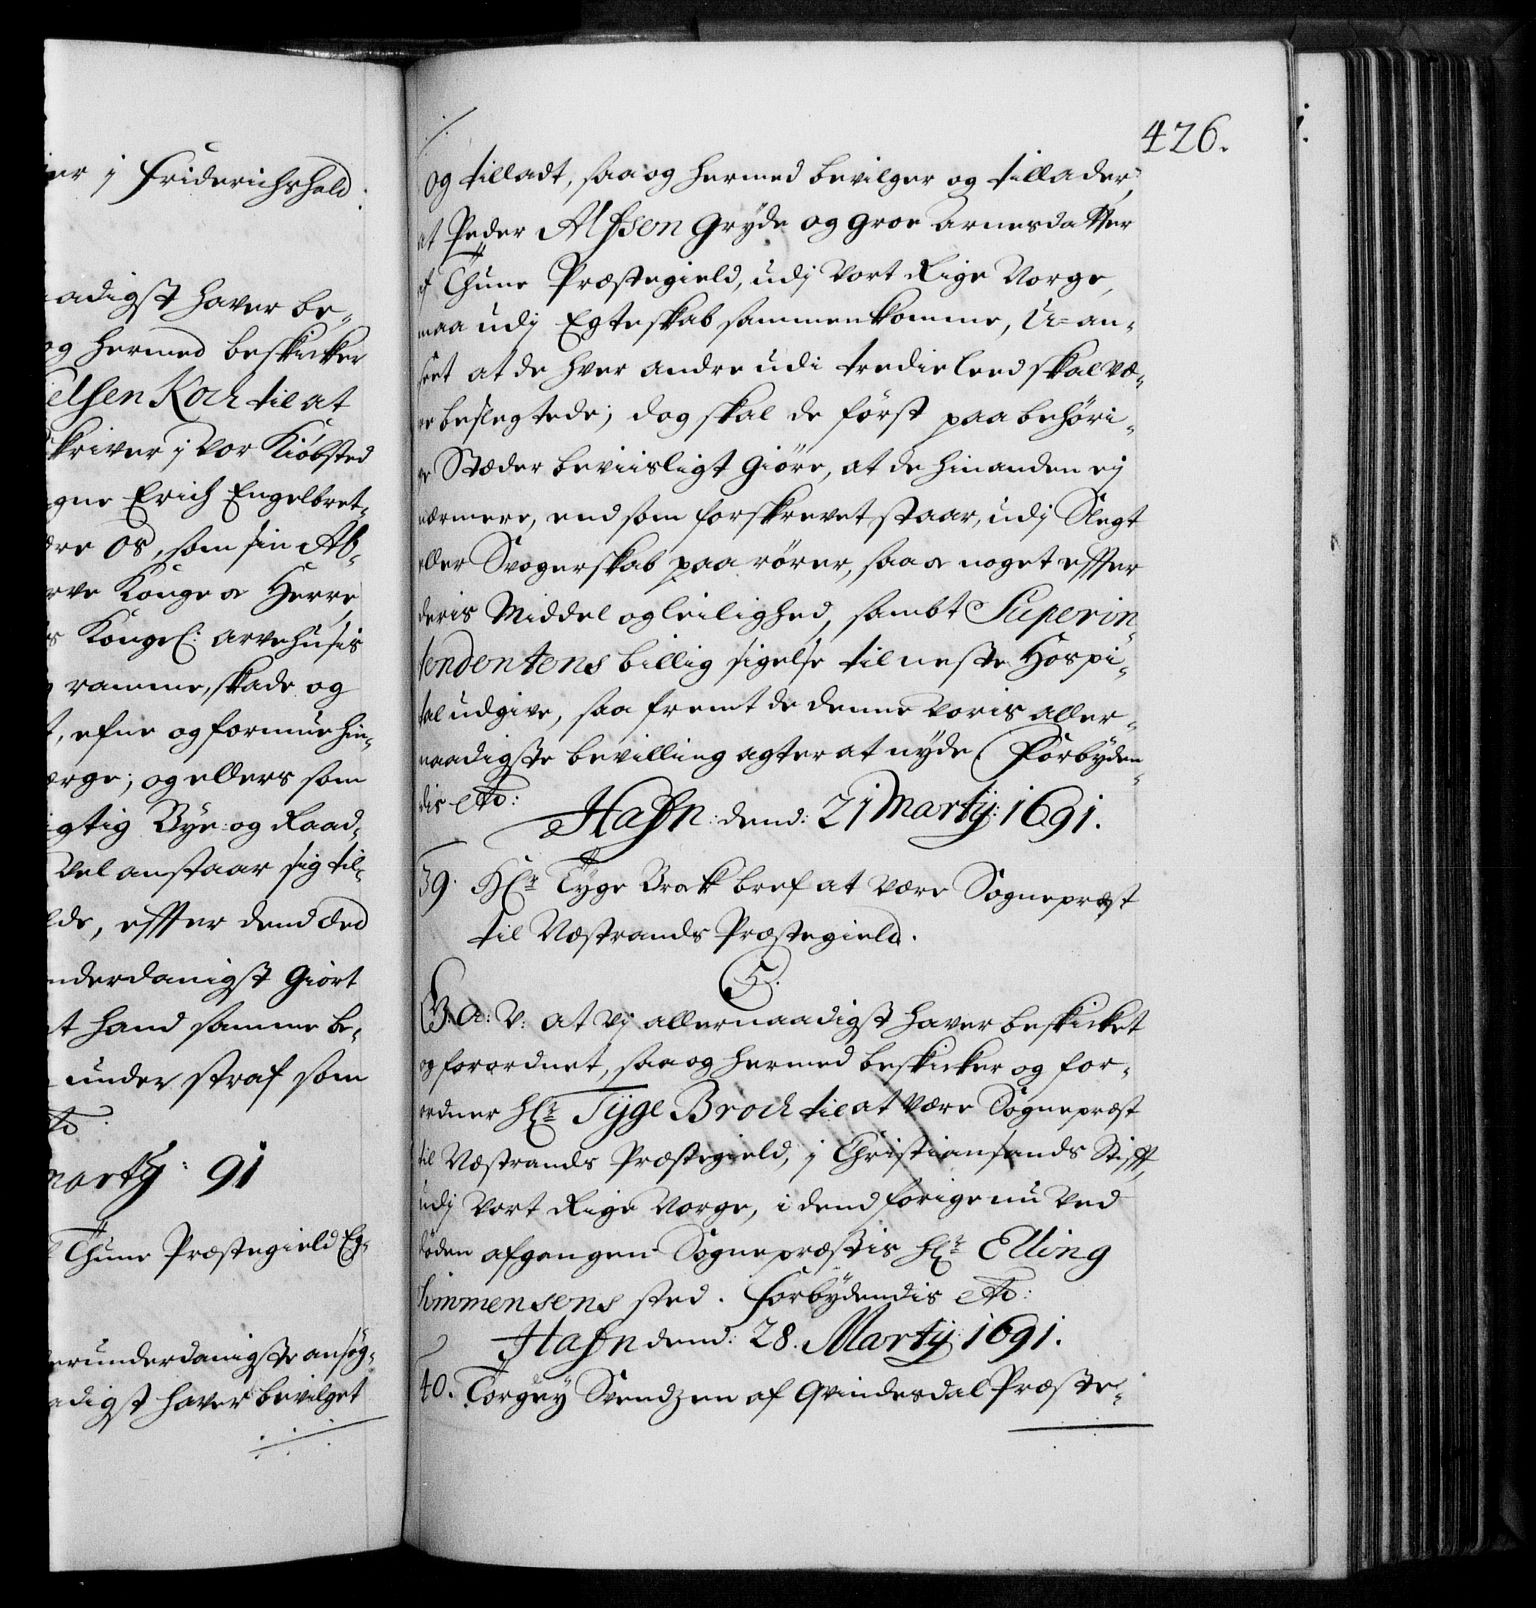 ier j Friderichshald.
aadigst haver be„
og hermed beskicker
elsen Koch til at
skriver j vor Kiöbsted
egne Erich Engelbret„
ære Os, som sin Ab„
rve Konge oc Herre,
s Kongel: arvehusis
ramme, skade og
t, efne og formue hin„
erge; og ellers som
igtig Bye: og Raad„
vel anstaar sig til„
lds, effter dend Eed
nderdanigst giort
t hand samme be„
under straf som
etc:
marty: 91
Thune Præstegield Eg„
derunderdanigste ansøg„
adigst haver bevilget
426.
og tilladt, saa og hermed bevilger og tillader,
at Peder Alfsen Gryde og Groe Arnesdatter
af Thune Præstegield, udj Vort Rige Norge,
maa udj Egteskab sammenkomme, U=an„
seet at de hver andre udi tredie leed skal væ„
re beslegtede; dog skal de först paa behöri„
ge Stæder beviisligt giöre, at de hinanden ej
nærmere, end som forskrevet staar, udj Slegt
eller Svogerskab paarörer, saa oc noget effter
deris Middel og leilighed, sambt Superin„
tendentens billig sigelse til neste Hospi„
tal udgive, saa fremt de denne Voris aller„
naadigste bevilling agter at nyde, Forbyden„
dis etc:
Hafn: dend: 21 Martij: 1691.
39. Hr Tyge Brock bref at være Sognepræst
til Væstrands Præstegield.
5.
G. A: V: at Vj allernaadigst haver beskicket
og forordnet, saa og hermed beskicker og for„
ordner Hr Tyge Broch til at være Sognepræst
til Væstrands Præstegield, j Christiansands Stifft,
udj Vort Rige Norge, i dend forige nu ved
döden afgangen Sognepræstis Hr Elling
Simmensens sted. Forbydendis etc:
Hafn dend: 28. Martij 1691.
40. Torgey Svendzen af Qvindesdal Præste„